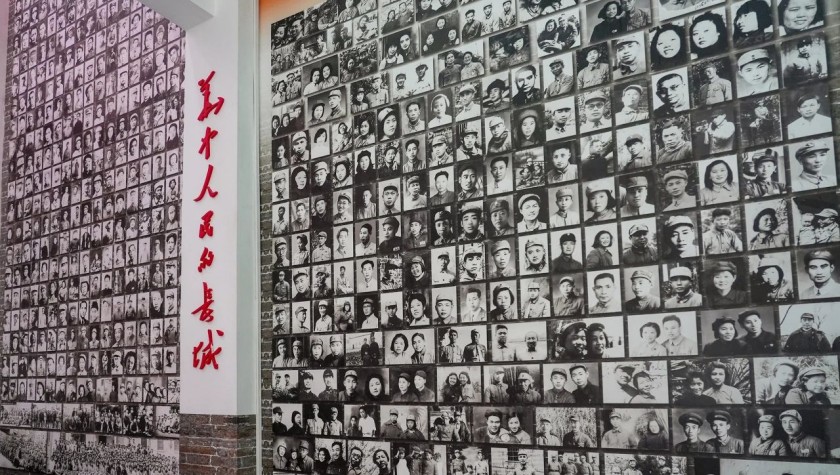 华中人民的长城